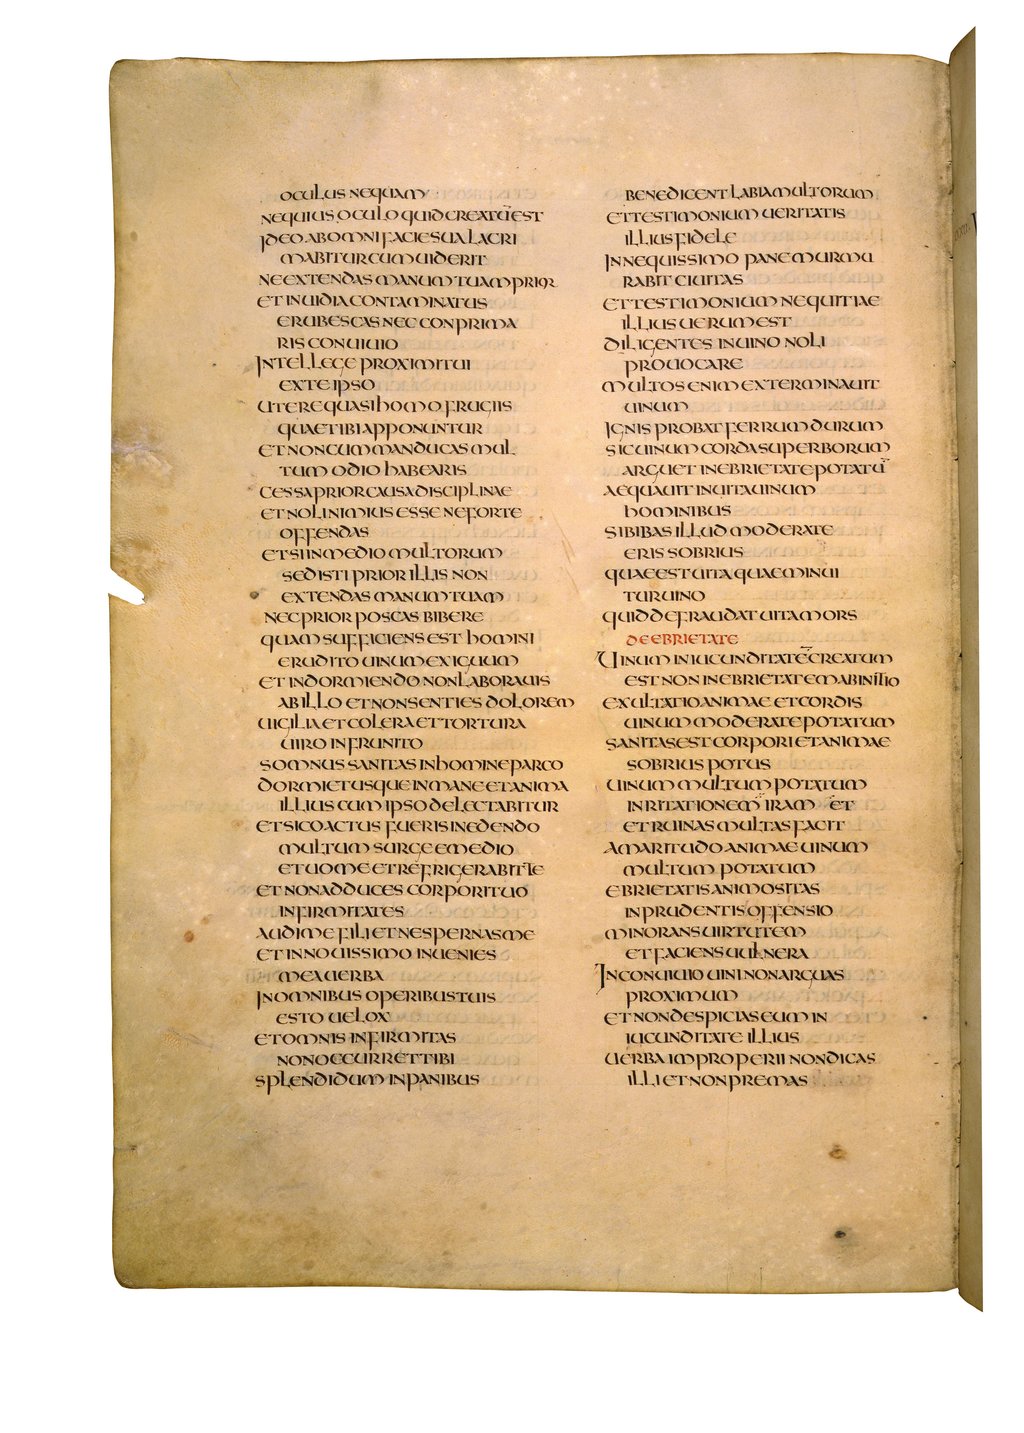 OCULUS NEQUAM
NEQUIUS OCULO QUID CREATŪ EST
IDEO AB OMNI FACIE SUA LACRI
MABITUR CUM UIDERIT
NE EXTENDAS MANUM TUAM PRIOR
ET INUIDIA CONTAMINATUS
ERUBESCAS NEC CONPRIMA
RIS CONUIUIO
INTELLEGE PROXIMI TUI
EX TE IPSO
UTERE QUASI HOMO FRUGIIS
QUAE TIBI APPONUNTUR
ET NON CUM MANDUCAS MUL
TUM ODIO HABEARIS
CESSA PRIOR CAUSA DISCIPLINAE
ET NOLI NIMIUS ESSE NE FORTE
OFFENDAS
ET SI IN MEDIO MULTORUM
SEDISTI PRIOR ILLIS NON
EXTENDAS MANUM TUAM
NEC PRIOR POSCAS BIBERE
QUAM SUFFICIENS EST HOMINI
ERUDITO UINUM EXIGUUM
ET IN DORMIENDO NON LABORAUIS
AB ILLO ET NON SENTIES DOLOREM
UIGILIA ET COLERA ET TORTURA
UIRO INFRUNITO
SOMNUS SANITAS IN HOMINE PARCO
DORMIET USQUE IN MANE ET ANIMA
ILLIUS CUM IPSO DELECTABITUR
ET SI COACTUS FUERIS IN EDENDO
MULTUM SURGE E MEDIO
ET UOME ET REFRIGERABIT TE
ET NON ADDUCES CORPORI TUO
INFIRMITATES
AUDI ME FILI ET NE SPERNAS ME
ET IN NOUISSIMO INUENIES
MEA UERBA
IN OMNIBUS OPERIBUS TUIS
ESTO UELOX
ET OMNIS INFIRMITAS
NON OCCURRET TIBI
SPLENDIDUM IN PANIBUS
BENEDICENT LABIA MULTORUM
ET TESTIMONIUM UERITATIS
ILLIUS FIDELE
IN NEQUISSIMO PANE MURMU
RABIT CIUITAS
ET TESTIMONIUM NEQUITIAE
ILLIUS UERUM EST
DILIGENTES IN UINO NOLI
PROUOCARE
MULTOS ENIM EXTERMINAUIT
UINUM
IGNIS PROBAT FERRUM DURUM
SIC UINUM CORDA SUPERBORUM
ARGUET IN EBRIETATE POTATŪ
AEQUA UIT IN UITA UINUM
HOMINIBUS
SI BIBAS ILLUD MODERATE
ERIS SOBRIUS
QUAE EST UITA QUAE MINUI
TUR UINO
QUID DEFRAUDAT UITA MORS
DE EBRIETATE
UINUM IN IUCUNDITATĒ CREATUM
EST NON IN EBRIETATEM AB INITIO
EXULTATIO ANIMAE ET CORDIS
UINUM MODERATE POTATUM
SANITAS EST CORPORI ET ANIMAE
SOBRIUS POTUS
UINUM MULTUM POTATUM
INRITATIONEM IRAM ET
ET RUINAS MULTAS FACIT
AMARITUDO ANIMAE UINUM
MULTUM POTATUM
EBRIETATIS ANIMOSITAS
INPRUDENTIS OFFENSIO
MINORANS UIRTUTEM
ET FACIENS UULNERA
IN CONUIUIO UINI NON ARGUAS
PROXIMUM
ET NON DESPICIAS EUM IN
IUCUNDITATE ILLIUS
UERBA IMPROPERII NON DICAS
ILLI ET NON PREMAS